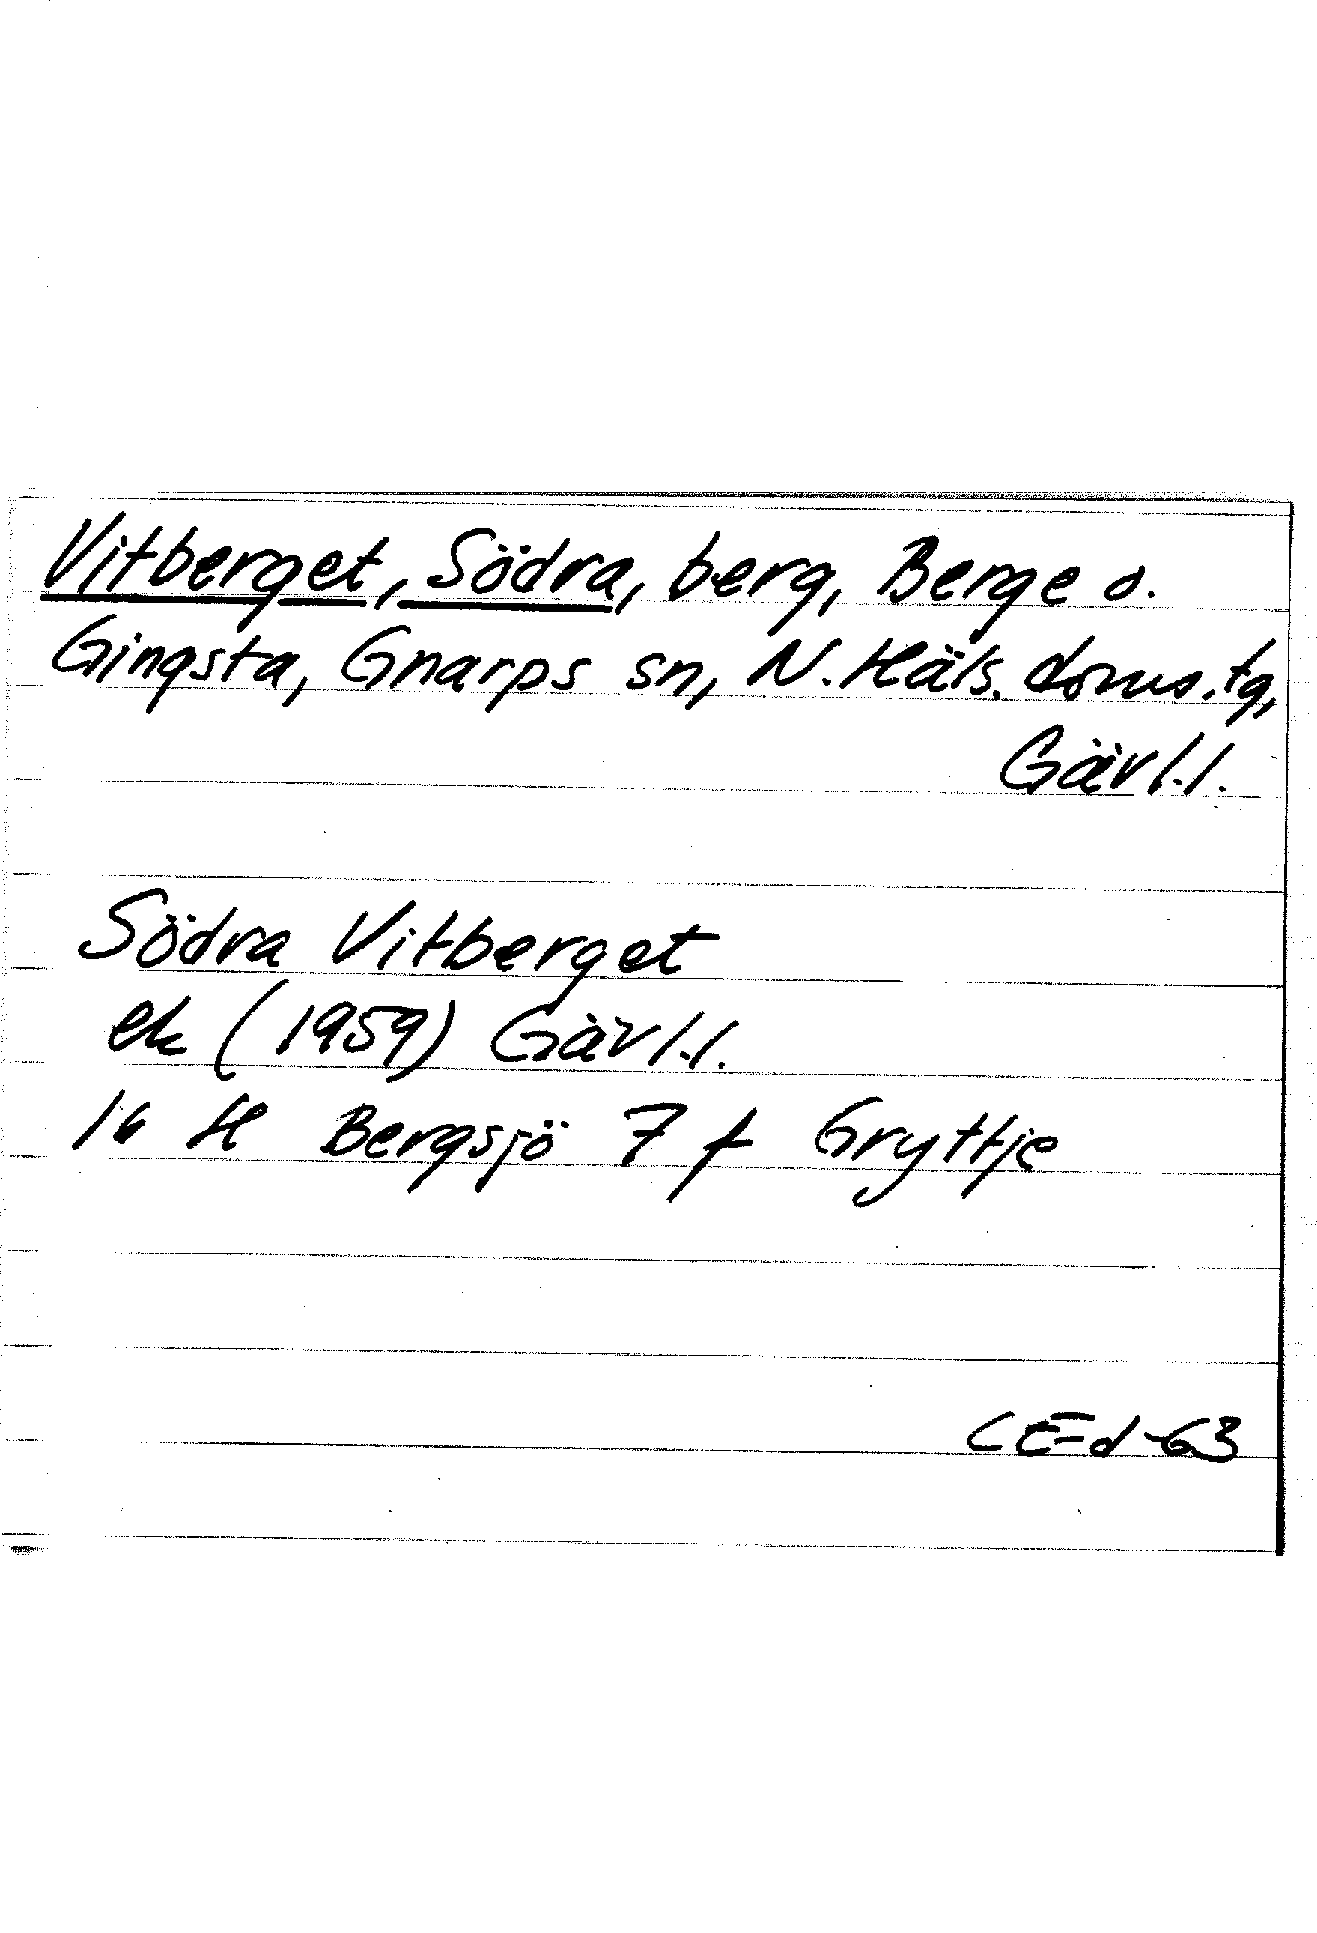 Vitberget, Södra, berg, Berge o.
Gingsta, Gnarps sn, N. Häls. doms.tg,
Gävl.l.
Södra Vitberget
ek (1959) Gävl.l.
16 H Bergsjö 7 f Gryttje
CEd-63